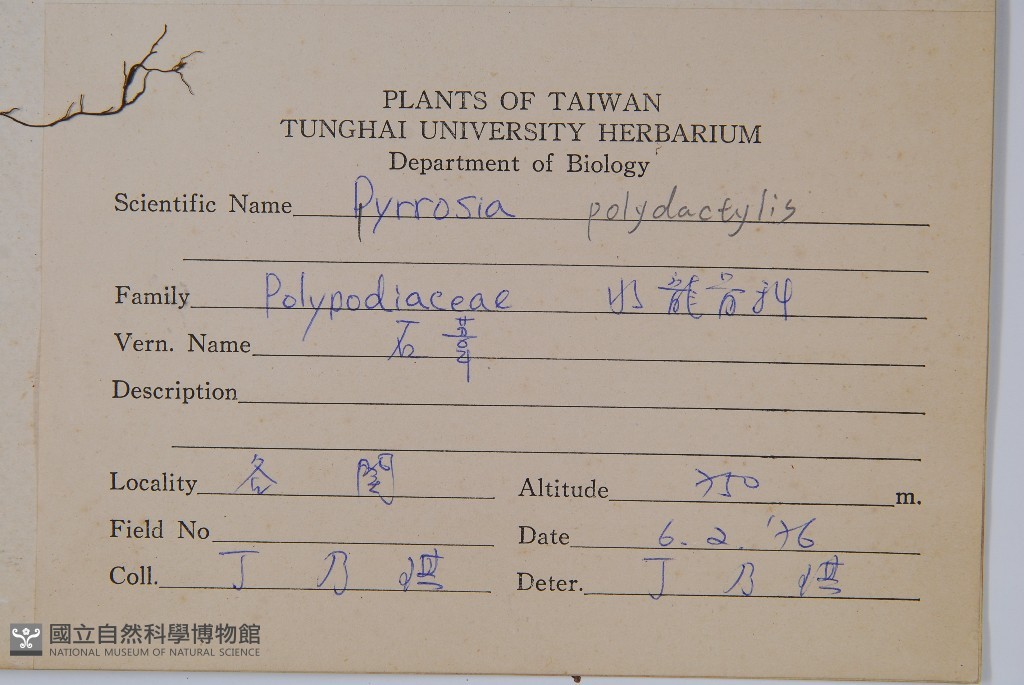 PLANTS OF TAIWAN
TUNGHAI UNIVERSITY HERBARIUM
Department of Biology
Scientific Name Pyrrosia polydactylis
Family Polypodiaceae 水龍骨科
Vern. Name 石葦
Description
Locality 谷關 Altitude 750 m.
Field No Date 6. 2. '76
Coll. 丁乃 Deter. 丁乃
國立自然科學博物館
NATIONAL MUSEUM OF NATURAL SCIENCE